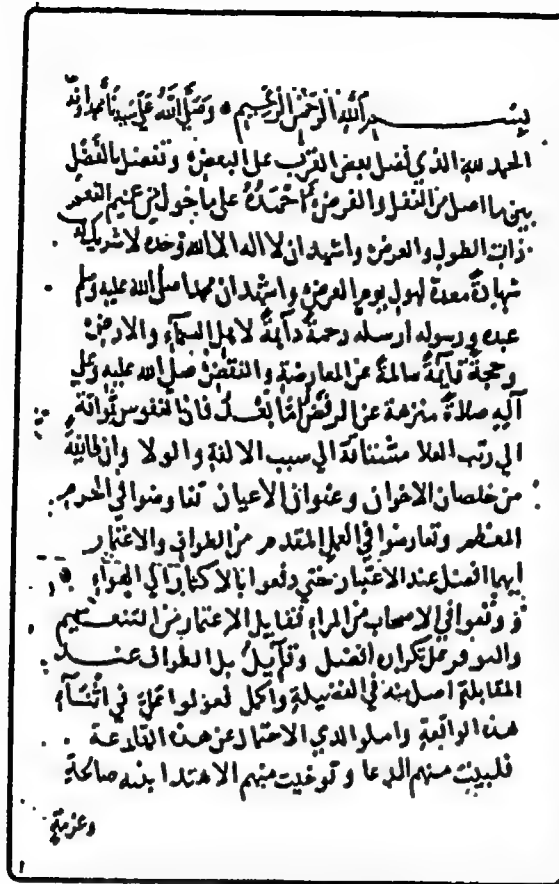 بسم الله الرحمن الرحيم وصلى الله على سيدنا محمد واله
الحمد لله الذي فضل بعض القرب على البعض وتفضل بالفضل
بين ما اصل من النفل والفرض احمده على ما خول من عميم النعم
ذات الطول والعرض واشهد ان لا اله الا الله وحده لا شريك له
شهادة معدة لهول يوم العرض واشهد ان محمدا صلى الله عليه وسلم
عبده ورسوله ارسله رحمة دآيمة لاهل السمآء والارض
وحجة قآيمة سالمة عن المعارضة والنقض صلى الله عليه وعلى
آله صلاة منزهة عن الرفض امّا بعد فان النفوس تواقة
الى رتب العلا مشتاقة الى سبب الالفة والولا وان طايفة
من خلصان الاخوان وعنوان الاعيان تفاوضوا في الحرم
المعظم وتعارضوا في العمل المقدم من الطواف والاعتمار
ايهما افضل عند الاعتبار حتى دفعوا بالاكثار الى
ووقعوا في الاصحاب من المراء فقايل الاعتمار من التنعيم
والموفر عمل تكراره افضل وقآيل بل الطواف عند
المقابلة اصل منه في الفضيلة واكمل فعولوا على في اثنآء
هذه الواقعة واملوا لدي الاحتمال عن هذه القارعة
فلبيت منهم الدعا وتوخيت منهم الاهتدا بنية صالحة
وعزمة
١